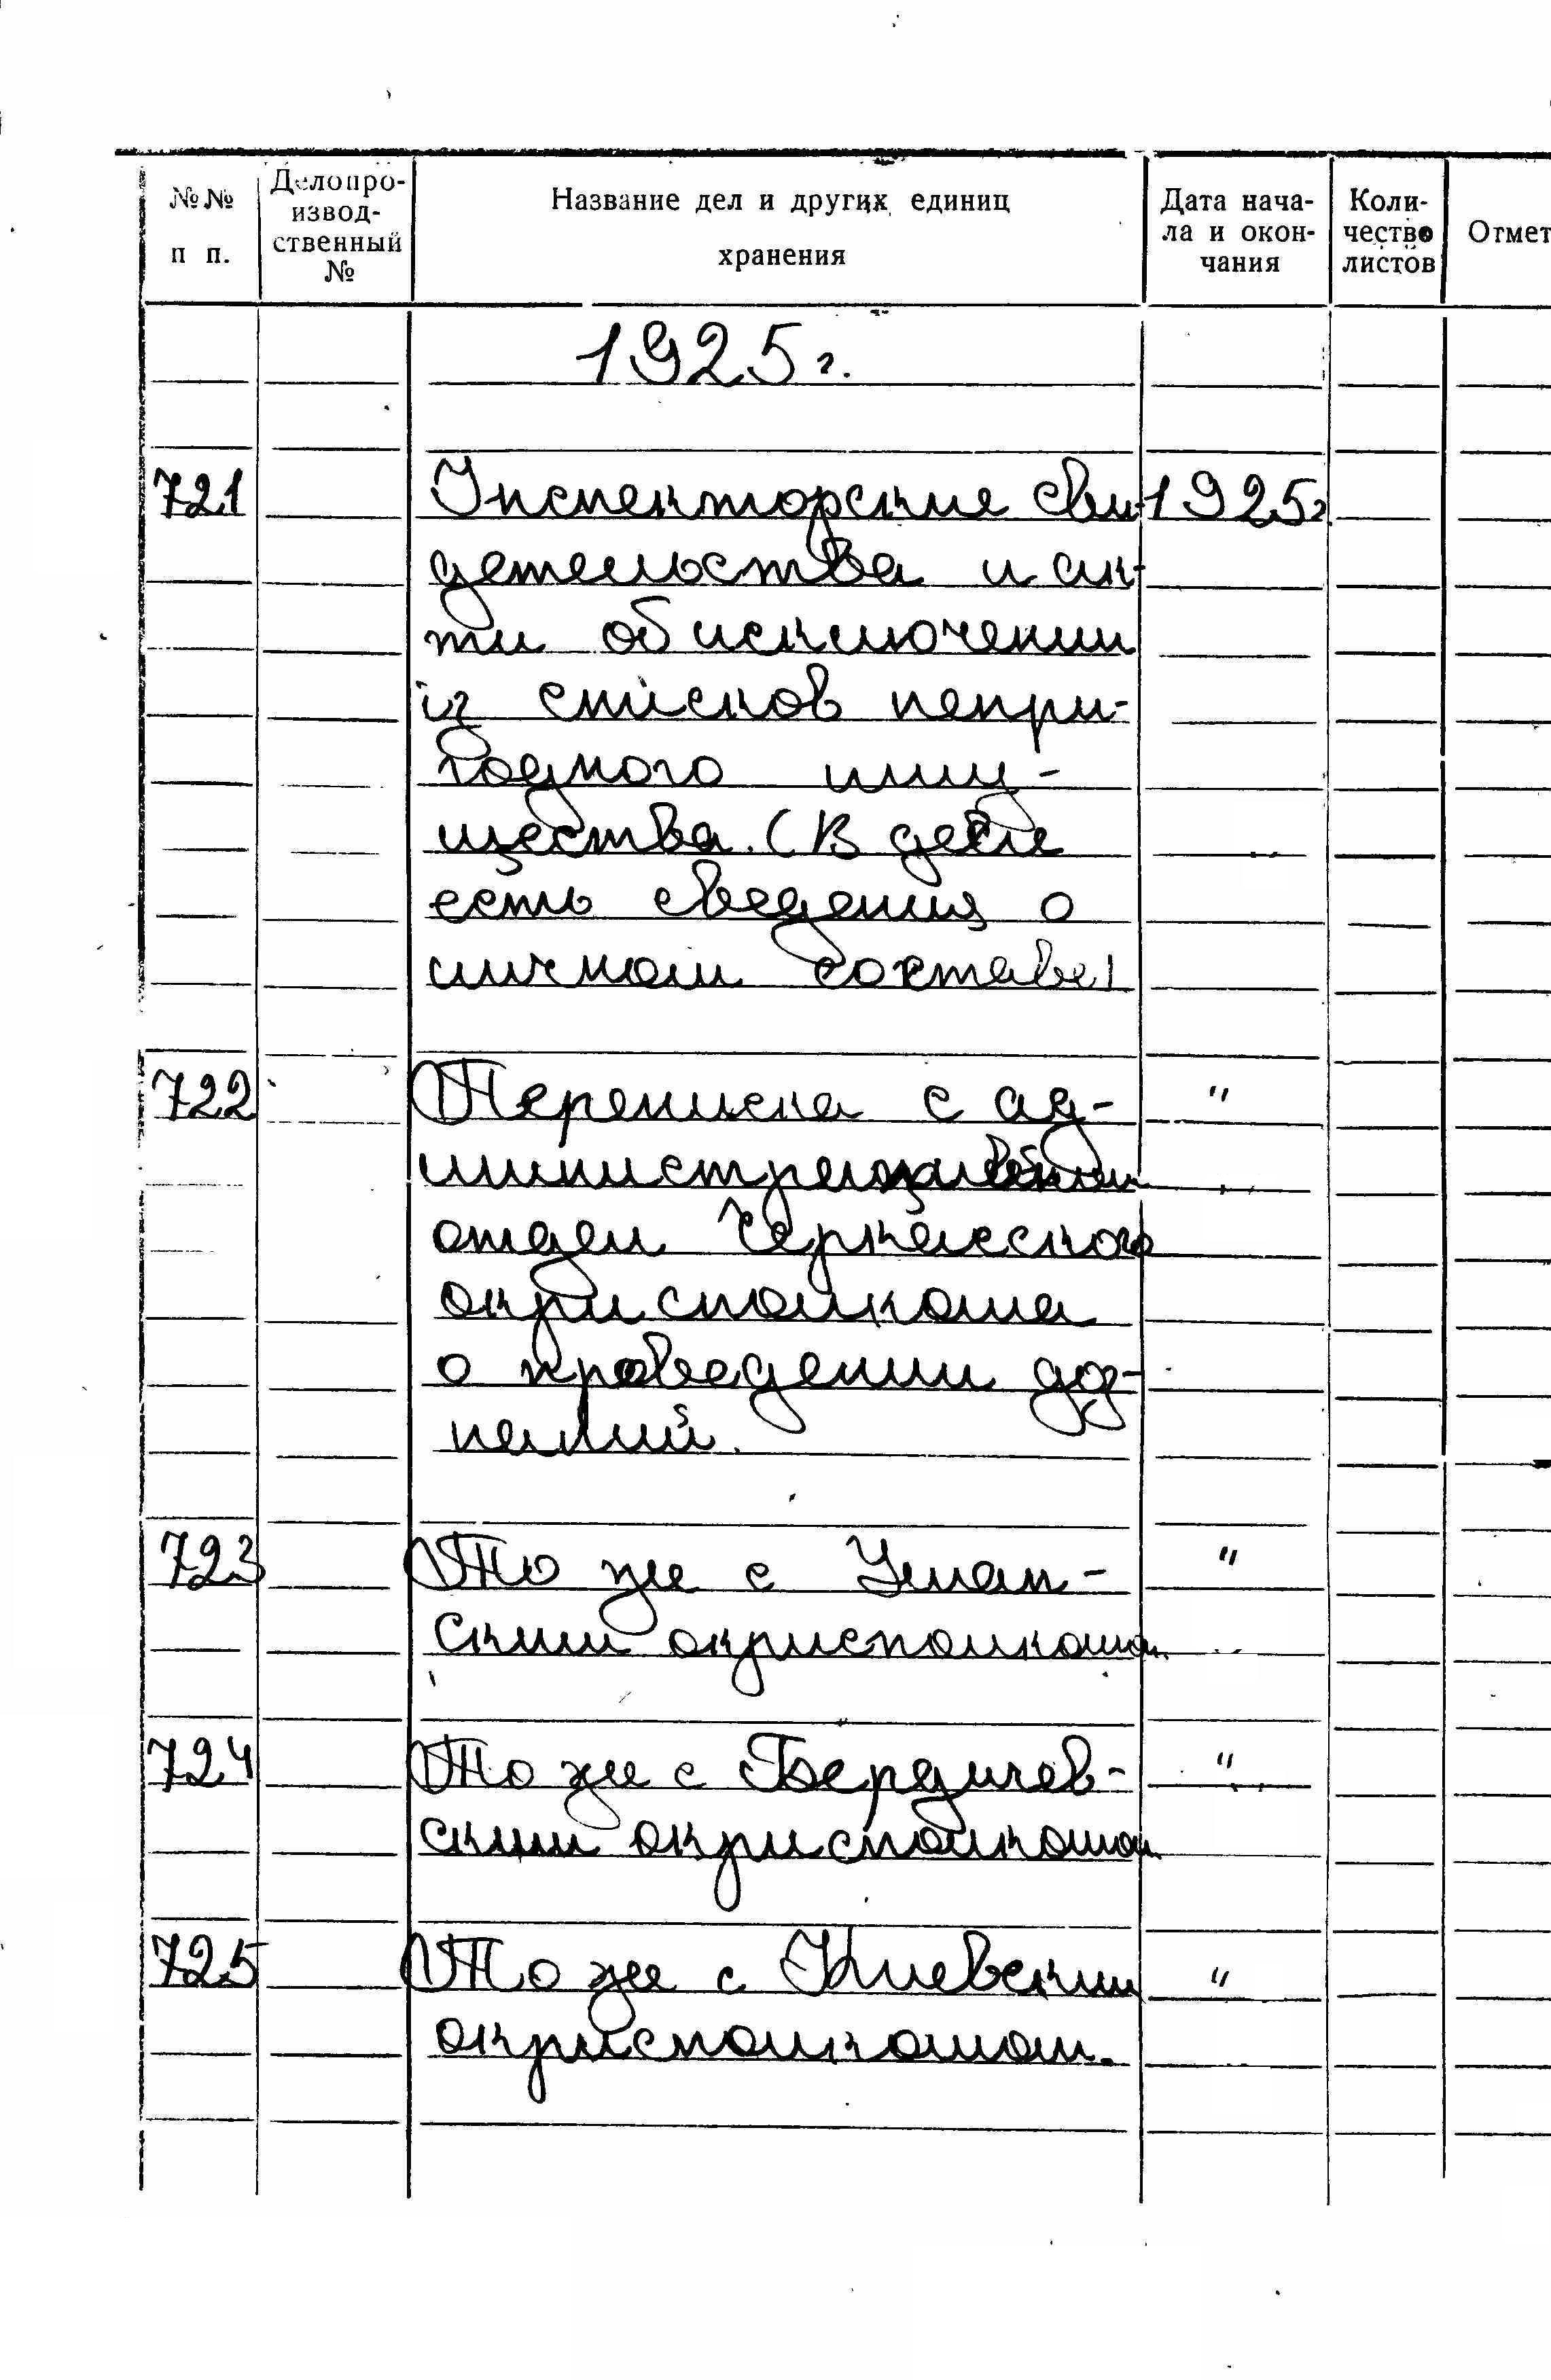 №№ п п.
Делопро-
извод-
ственный
№
Название дел и других единиц
хранения
Дата нача-
ла и окон-
чания
Коли-
чество
листов
Отмет
1925 г.
721 Инспекторские сви- 1925 г.
детельства и ак-
ти об исключении
із списков непри-
годного иму-
щества. (В деле
есть сведения о
личном составе)
722 Переписка с ад- "
министрационным
отдел Черкасского
окрисполкома
о проведении доз-
наний.
723 То же с Уман- "
ским окрисполкомом
724 То же с Бердичев- "
ским окрисполкомом
725 То же с Киевским "
окрисполкомом.